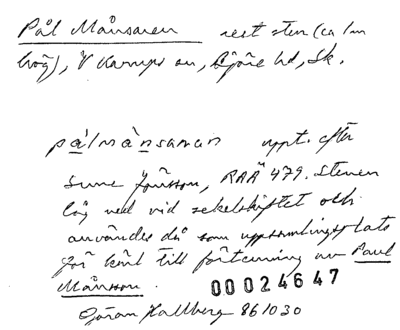 Pål Månsaren rest sten (ca 1m
hög), V Karups sn, Bjäre hd, Sk.
pålmånsaran uppt. efter
Sune Jönsson, RAÄ 479. Stenen
låg ned vid sekelskiftet och
användes då som uppsamlingsplats
för till förtenning av Paul
Månsson.
00024647
Göran Hallberg 861030